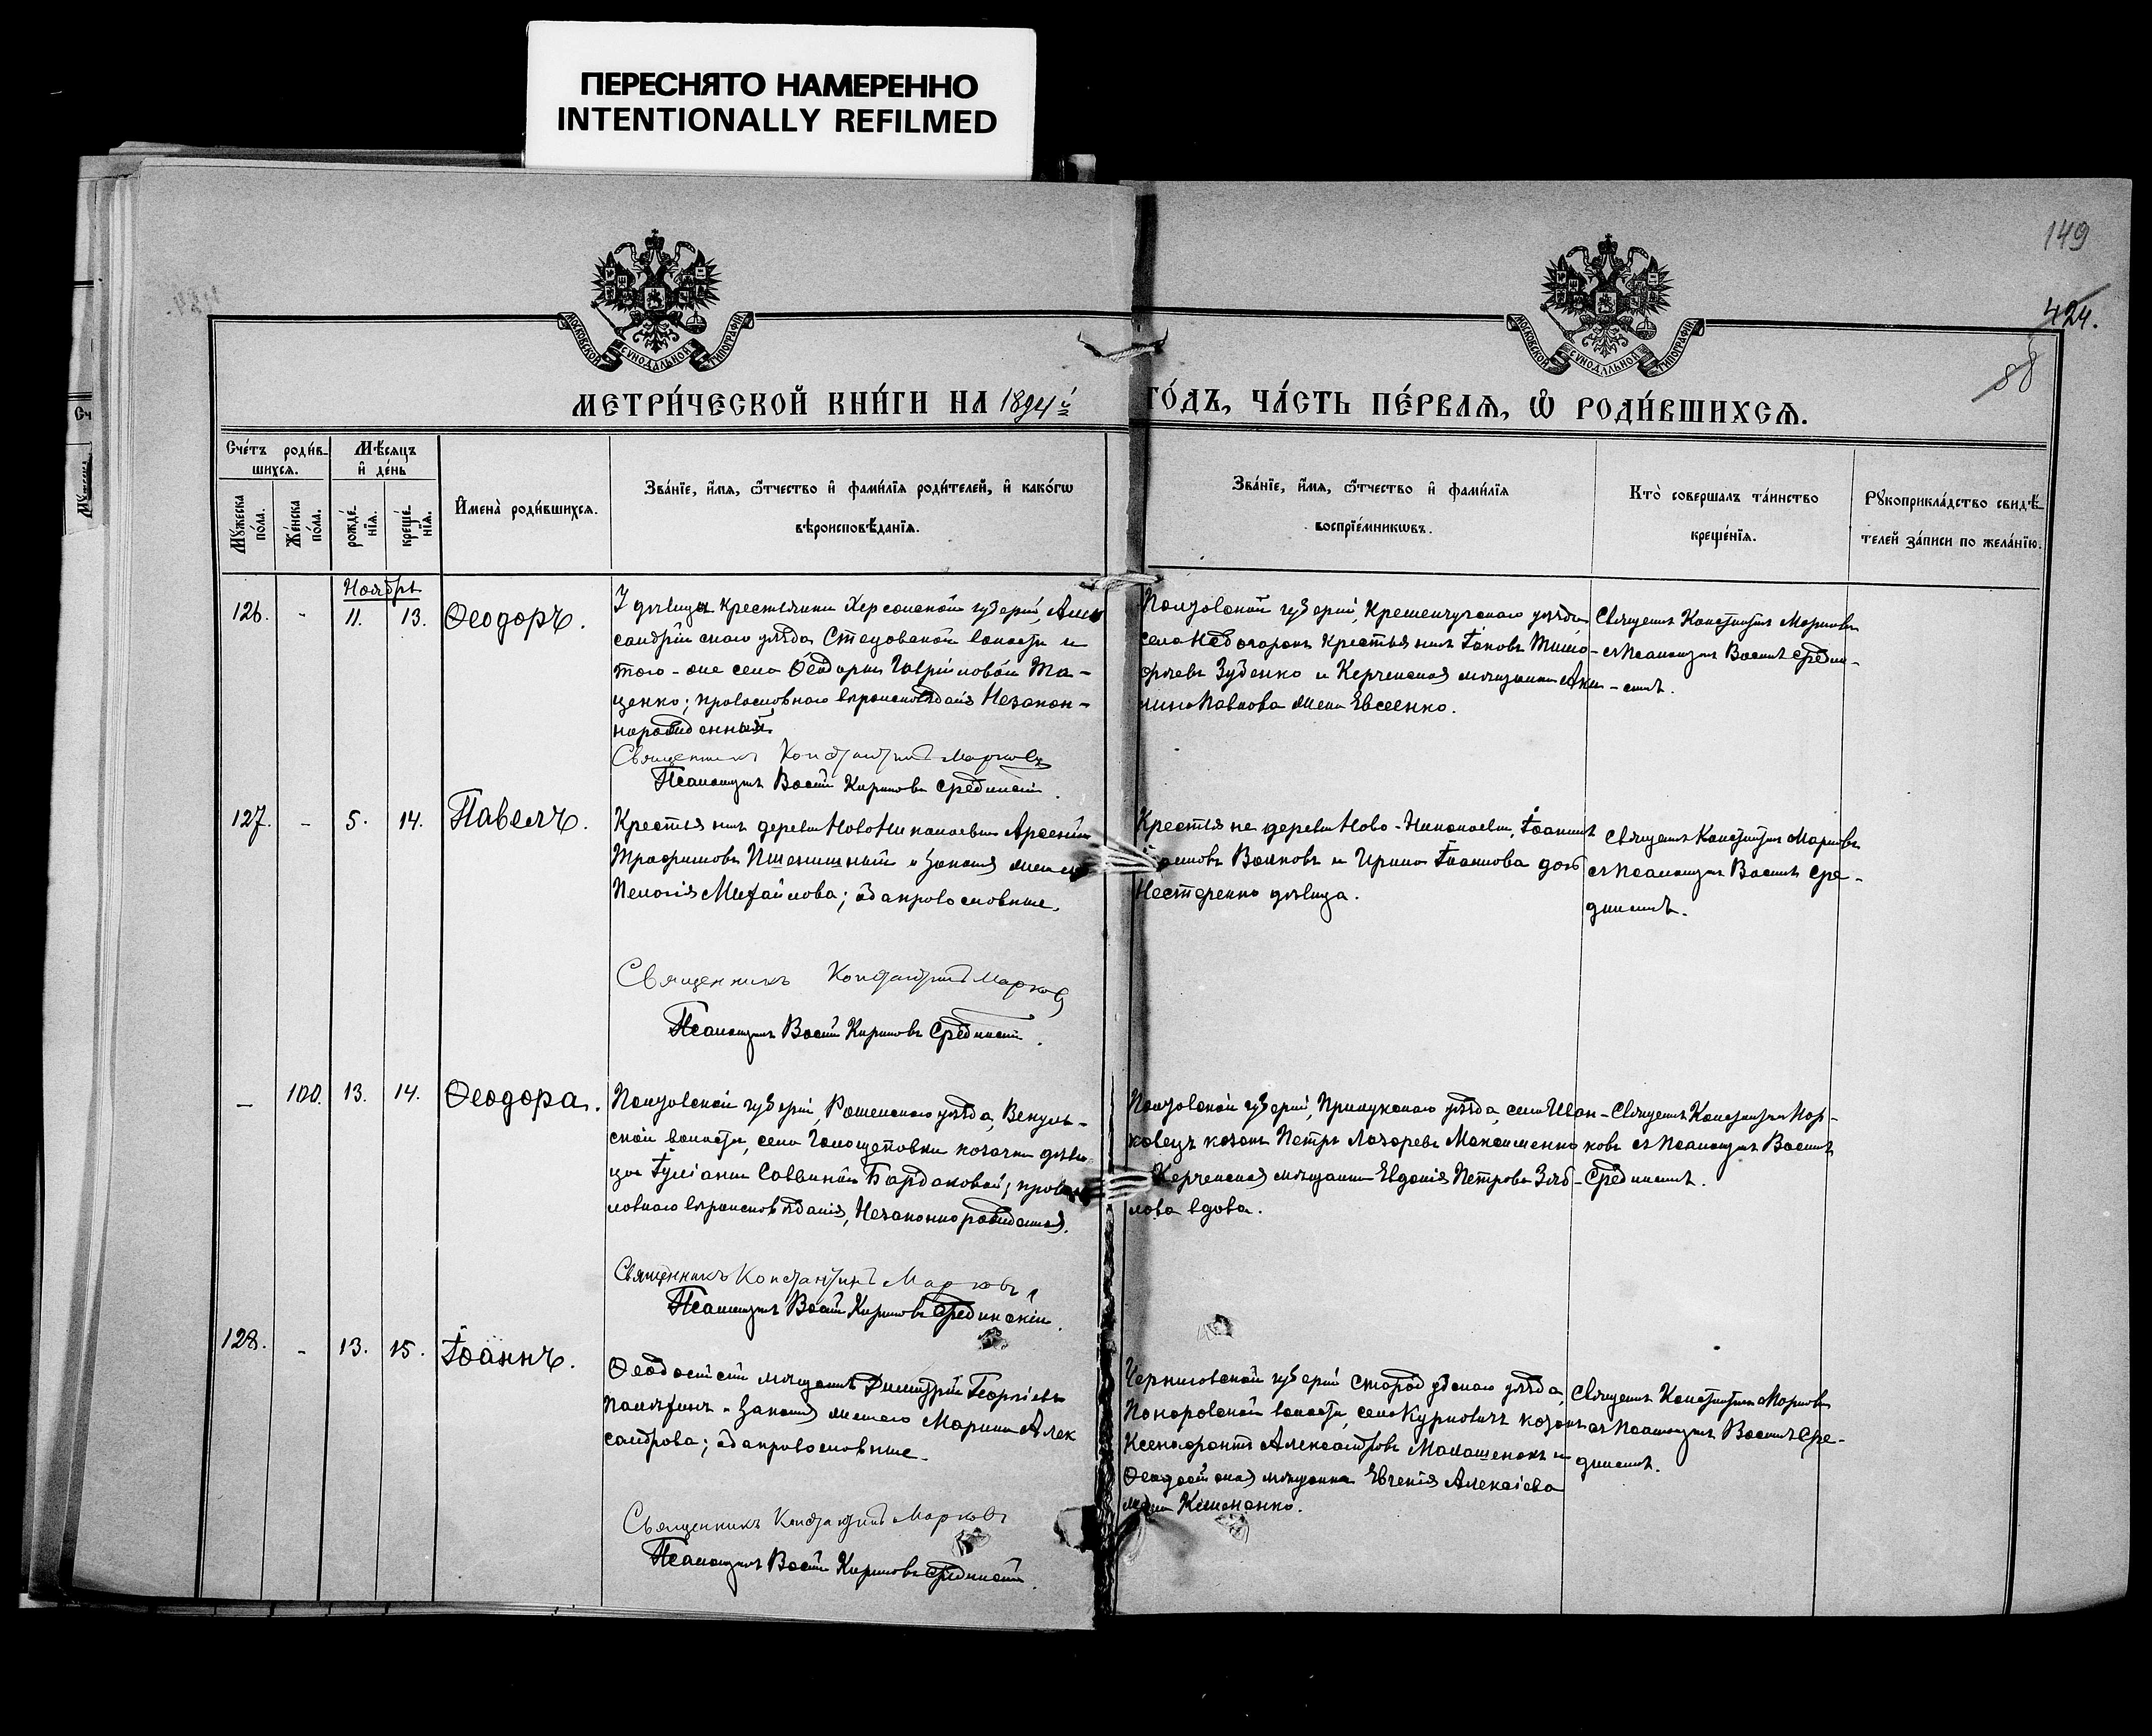 ПЕРЕСНЯТО НАМЕРЕННО
INTENTIONALLY REFILMED
149
424.
88
МОСКОВСКОЙ СѴНОДАЛЬНОЙ ТИПОГРАФІИ
МОСКОВСКОЙ СѴНОДАЛЬНОЙ ТИПОГРАФІИ
МЕТРИ́ЧЕСКОЙ КНИ́ГИ НА 1894й ГО́ДЪ, ЧА́СТЬ ПЕ́РВАѦ, Ѡ РОДИ́ВШИХСѦ.
Сче́тъ роди́в-
шихсѧ.
Мꙋ́жеска по́ла.
Же́нска по́ла.
Мѣ́сѧцъ
и҆ де́нь
рожде́-нїѧ.
креще́-нїѧ.
И҆мена̀ роди́вшихсѧ.
Зва́нїе, и҆́мѧ, ѻ҆́тчество и҆ фами́лїѧ роди́телей, и҆ како́гѡ
вѣроисповѣ́данїѧ.
Зва́нїе, и҆́мѧ, ѻ҆́тчество и҆ фами́лїѧ
воспрїе́мникѡвъ.
Кто̀ соверша́лъ та́инство
креще́нїѧ.
Рꙋкоприкла́дство свидѣ́-
телей за́писи по жела́нїю.
Ноябрь
126. - 11. 13. Ѳеодоръ.
У дѣвицы крестьянки Херсонской губерніи, Алек
сандрійскаго уѣзда Стецовской волости и
того-же села Ѳеодоры Гавріиловой Та-
ценко; православнаго вѣроисповѣданія Незакон-
норожденный
Священникъ Константинъ Марковъ
Псаломщикъ Василій Кириловъ Срединскій.
Полтавской губерніи, Кременчугскаго уѣзда
села крестьянинъ Іаковъ Тимо-
фѣевъ Зубенко и Керченская мѣщанка Аки-
лина Павлова жена Евсеенко.
Священникъ Константинъ Марковъ
съ Псаломщикомъ Василіемъ Средин-
скимъ.
127. - 5. 14. Павелъ.
Крестьянинъ деревни Ново Николаевки Арсеній
Трофимовъ Пшеничный и законная жена его
Пелагія Михайлова; оба православные.
Священникъ Константинъ Марковъ
Псаломщикъ Василій Кириловъ Срединскій.
Крестьяне деревни Ново-Николаевки, Іоаннъ
Волковъ и Ирина Іоаннова дочь
Нестеренко дѣвица.
Священникъ Константинъ Марковъ
съ Псаломщикомъ Василіемъ Сре-
динскимъ.
- 100. 13. 14. Ѳеодора.
Полтавской губерніи, Роменскаго уѣзда,
ской волости, села козачки дѣви-
цы Іуліаніи Саввиной Бардаковой; правос
лавнаго вѣроисповѣданія, Незаконнорожденная.
Священникъ Константинъ Марковъ
Псаломщикъ Василій Кириловъ Срединскій.
Полтавской губерніи, Прилукскаго уѣзда, села Иван-
ковецъ козакъ Петръ Лазаревъ Максименко
Керченская мѣщанка Евдокія Петрова
лова вдова.
Священникъ Константинъ Мар-
ковъ съ Псаломщикомъ Василіемъ
Срединскимъ.
128. - 13. 15. Іоаннъ.
Ѳеодосійскій мѣщанинъ Димитрій Георгіевъ
и законная жена его Марина Алек
сандрова; оба православные.
Священникъ Константинъ Марковъ
Псаломщикъ Василій Кириловъ Срединскій.
Черниговской губерніи Стародубскаго уѣзда,
Понуровской волости, села Курковичъ козакъ
Ксенофонтъ Александровъ Малашенокъ и
Ѳеодосійская мѣщанка Евгенія Алексіева
жена
Священникъ Константинъ Марковъ
съ Псаломщикомъ Василіемъ Сре-
динскимъ.